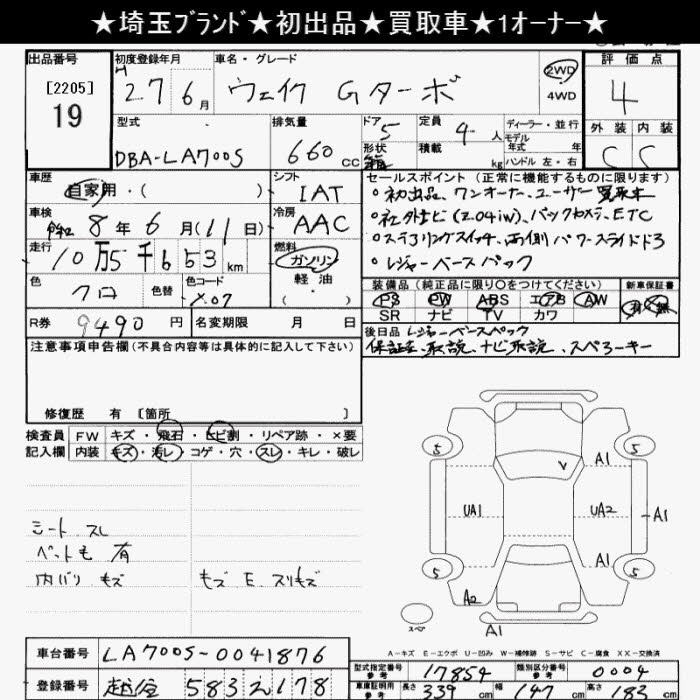 ★埼玉ブランド★初出品★買取車★1オーナー★
出品番号 初度登録年月 車名・グレード 2WD 評価点
[2205] H 27 6月 ウェイク Gターボ 4WD 4
19
型式 排気量 ドア 5 定員 4人 ディーラー・並行 外装 内装
モデル
DBA-LA700S 660CC 形状 積載 kg 年式 年 C C
ハンドル 左・右
車歴 シフト セールスポイント(正常に機能するものに限ります)
自家用・( ) IAT ○初出品、ワンオーナー、ユーザー買取車
車検 冷房 ○社外ナビ(Z04iW)、バックカメラ、ETC
令和8年6月(11日) AAC ○ステアリングスイッチ、両側パワースライドドア
走行 燃料 ○レジャーベースパック
10万5千653km ガソリン
軽油
・( )
色 色替 色コード 装備品(純正品に限り○をつけてください) 新車保証書
クロ X07 PS PW ABS エアB AW 有・無
SR ナビ TV カワ
R券 9490円 名変期限 月 日 後日品 レジャーベースパック
保証書、取説、ナビ取説、スペアーキー
注意事項申告欄(不具合内容等は具体的に記入して下さい)
修復歴 有 [箇所 ]
検査員 FW キズ・飛石・ヒビ割・リペア跡・×要
記入欄 内装 キズ・汚レ・コゲ・穴・スレ・キレ・破レ
5 A1 5
V
UA1 UA2 A1
シート スレ
ペット毛 有
内バリ キズ キズ E スリキズ
5 A1 5
A2
スペア A1
A-キズ E-エクボ U-凹み W-補修跡 S-サビ C-腐食 XX-交換済
車台番号 LA700S-0041876
型式指定番号 参考 17854 類別区分番号 参考 0004
登録番号 越谷 583 178
車庫証明用 参考 長さ 339cm 幅 147cm 高さ 183cm